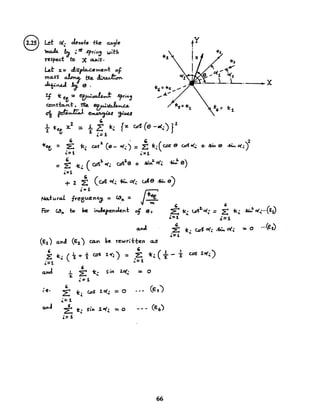 2.25
Let αᵢ denote the angle
made by iᵗʰ spring with
respect to X axis.
Let x = displacement of
mass along the direction
defined by θ.
If k_eq = equivalent spring
constant, the equivalence
of potential energies gives
½ k_eq x² = ½ Σ_{i=1}^{6} kᵢ {x cos (θ - αᵢ)}²
k_eq = Σ_{i=1}^{6} kᵢ cos² (θ - αᵢ) = Σ_{i=1}^{6} kᵢ (cos θ cos αᵢ + sin θ sin αᵢ)²
= Σ_{i=1}^{6} kᵢ (cos² αᵢ cos² θ + sin² αᵢ sin² θ)
+ 2 Σ_{i=1}^{6} (cos αᵢ sin αᵢ cos θ sin θ)
Natural frequency = ωₙ = √(k_eq / m)
For ωₙ to be independent of θ, Σ_{i=1}^{6} kᵢ cos² αᵢ = Σ_{i=1}^{6} kᵢ sin² αᵢ --(E₁)
and Σ_{i=1}^{6} kᵢ cos αᵢ sin αᵢ = 0 --(E₂)
(E₁) and (E₂) can be rewritten as
Σ_{i=1}^{6} kᵢ (½ + ½ cos 2αᵢ) = Σ_{i=1}^{6} kᵢ (½ - ½ cos 2αᵢ)
and ½ Σ_{i=1}^{6} kᵢ sin 2αᵢ = 0
i.e. Σ_{i=1}^{6} kᵢ cos 2αᵢ = 0 --- (E₃)
and Σ_{i=1}^{6} kᵢ sin 2αᵢ = 0 --- (E₄)
Y
X
66